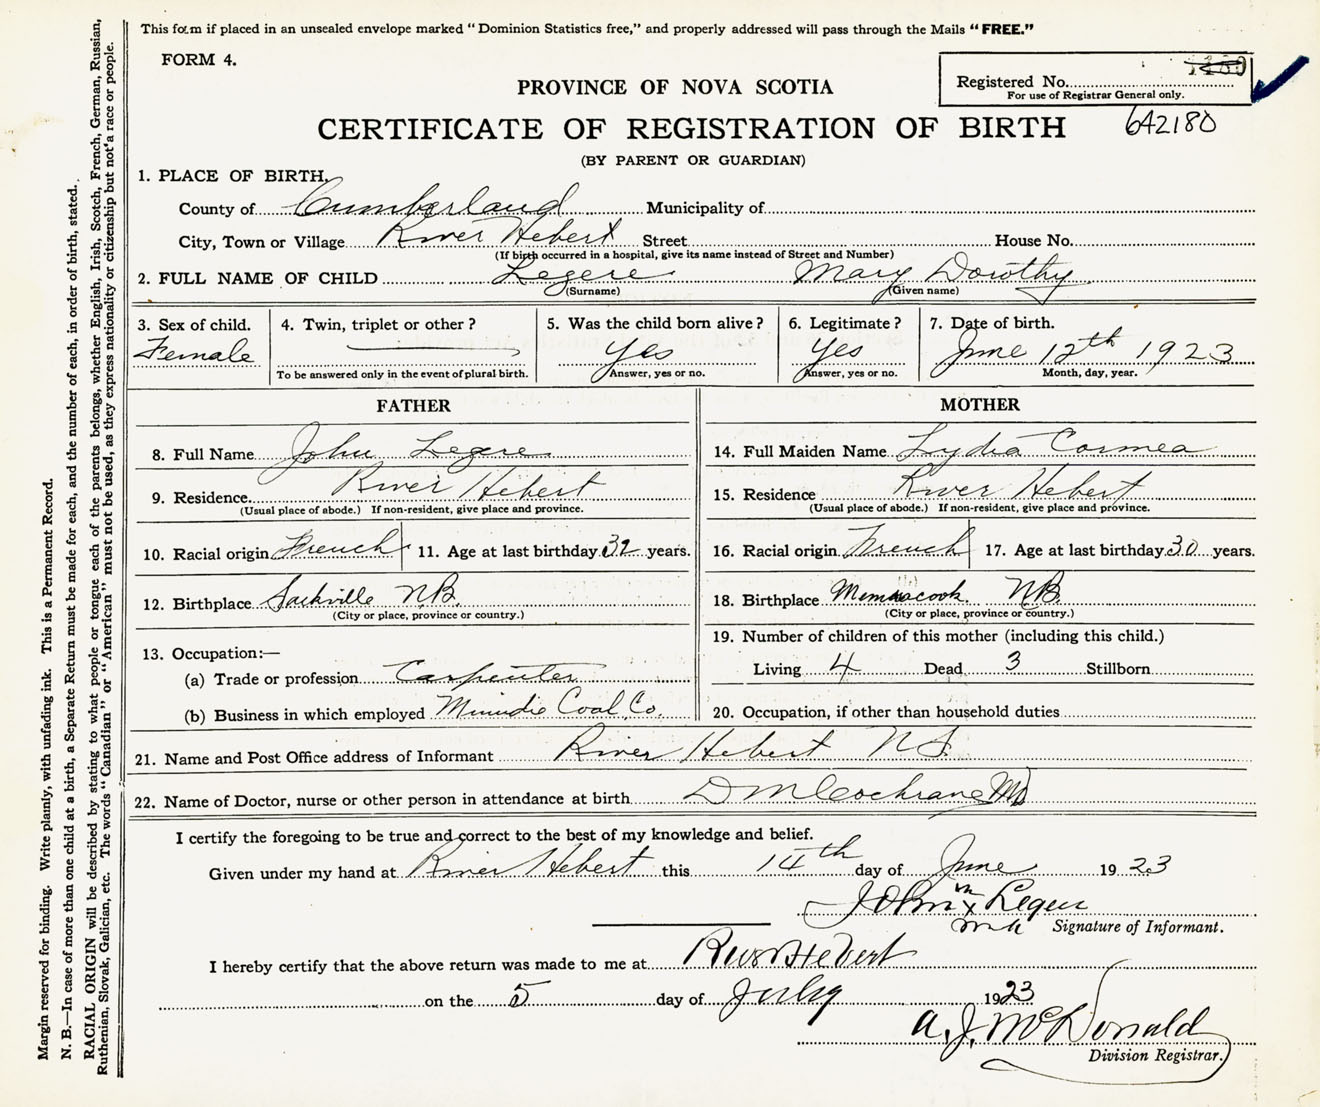 This form if placed in an unsealed envelope marked "Dominion Statistics free," and properly addressed will pass through the Mails "FREE."
FORM 4.
Registered No.
For use of Registrar General only.
642180
PROVINCE OF NOVA SCOTIA
CERTIFICATE OF REGISTRATION OF BIRTH
(BY PARENT OR GUARDIAN)
1. PLACE OF BIRTH,
County of Cumberland Municipality of
City, Town or Village River Hebert Street House No.
(If birth occurred in a hospital, give its name instead of Street and Number)
2. FULL NAME OF CHILD Legere Mary Dorothy
(Surname) (Given name)
3. Sex of child. Female
4. Twin, triplet or other?
To be answered only in the event of plural birth.
5. Was the child born alive? Yes
Answer, yes or no.
6. Legitimate? Yes
Answer, yes or no.
7. Date of birth. June 12th 1923
Month, day, year.
FATHER
8. Full Name John Legere
9. Residence. River Hebert
(Usual place of abode.) If non-resident, give place and province.
10. Racial origin French 11. Age at last birthday 32 years.
12. Birthplace Sackville N.B.
(City or place, province or country.)
13. Occupation:—
(a) Trade or profession Carpenter
(b) Business in which employed Minudie Coal Co.
MOTHER
14. Full Maiden Name Lydia Cormea
15. Residence River Hebert
(Usual place of abode.) If non-resident, give place and province.
16. Racial origin French 17. Age at last birthday 30 years.
18. Birthplace N.B.
(City or place, province or country.)
19. Number of children of this mother (including this child.)
Living 4 Dead 3 Stillborn
20. Occupation, if other than household duties
21. Name and Post Office address of Informant River Hebert N.S.
22. Name of Doctor, nurse or other person in attendance at birth D M Cochrane MD
I certify the foregoing to be true and correct to the best of my knowledge and belief.
Given under my hand at River Hebert this 14th day of June 1923
John x Leger
Signature of Informant.
I hereby certify that the above return was made to me at River Hebert
on the 5 day of July 1923
A. J. McDonald
Division Registrar.
Margin reserved for binding. Write plainly, with unfading ink. This is a Permanent Record.
N. B.—In case of more than one child at a birth, a Separate Return must be made for each, and the number of each, in order of birth, stated.
RACIAL ORIGIN will be described by stating to what people or tongue each of the parents belongs, whether English, Irish, Scotch, French, German, Russian,
Ruthenian, Slovak, Galician, etc. The words "Canadian" or "American" must not be used, as they express nationality or citizenship but not a race or people.